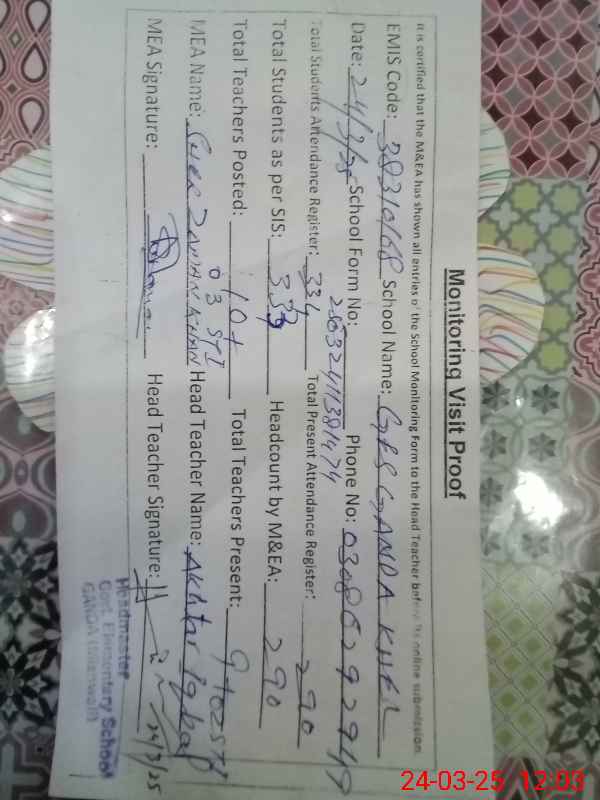 Monitoring Visit Proof
It is certified that the M&EA has shown all entries of the School Monitoring Form to the Head Teacher before its online submission
EMIS Code: 38310168 School Name: GES GANDA KHEL
Date: 24/3/25 School Form No: Phone No: 03086292949
Total Students Attendance Register: 334 Total Present Attendance Register: 290
Total Students as per SIS: Headcount by M&EA: 290
Total Teachers Posted: 10+ 03 STI Total Teachers Present: 9+02STI
MEA Name: SHER ZAMAN KHAN Head Teacher Name: Akhtar Iqbal
MEA Signature: Head Teacher Signature: 24/3/25
Headmaster
Govt. Elementary School
GANDA (Mianwali)
24-03-25 12:03